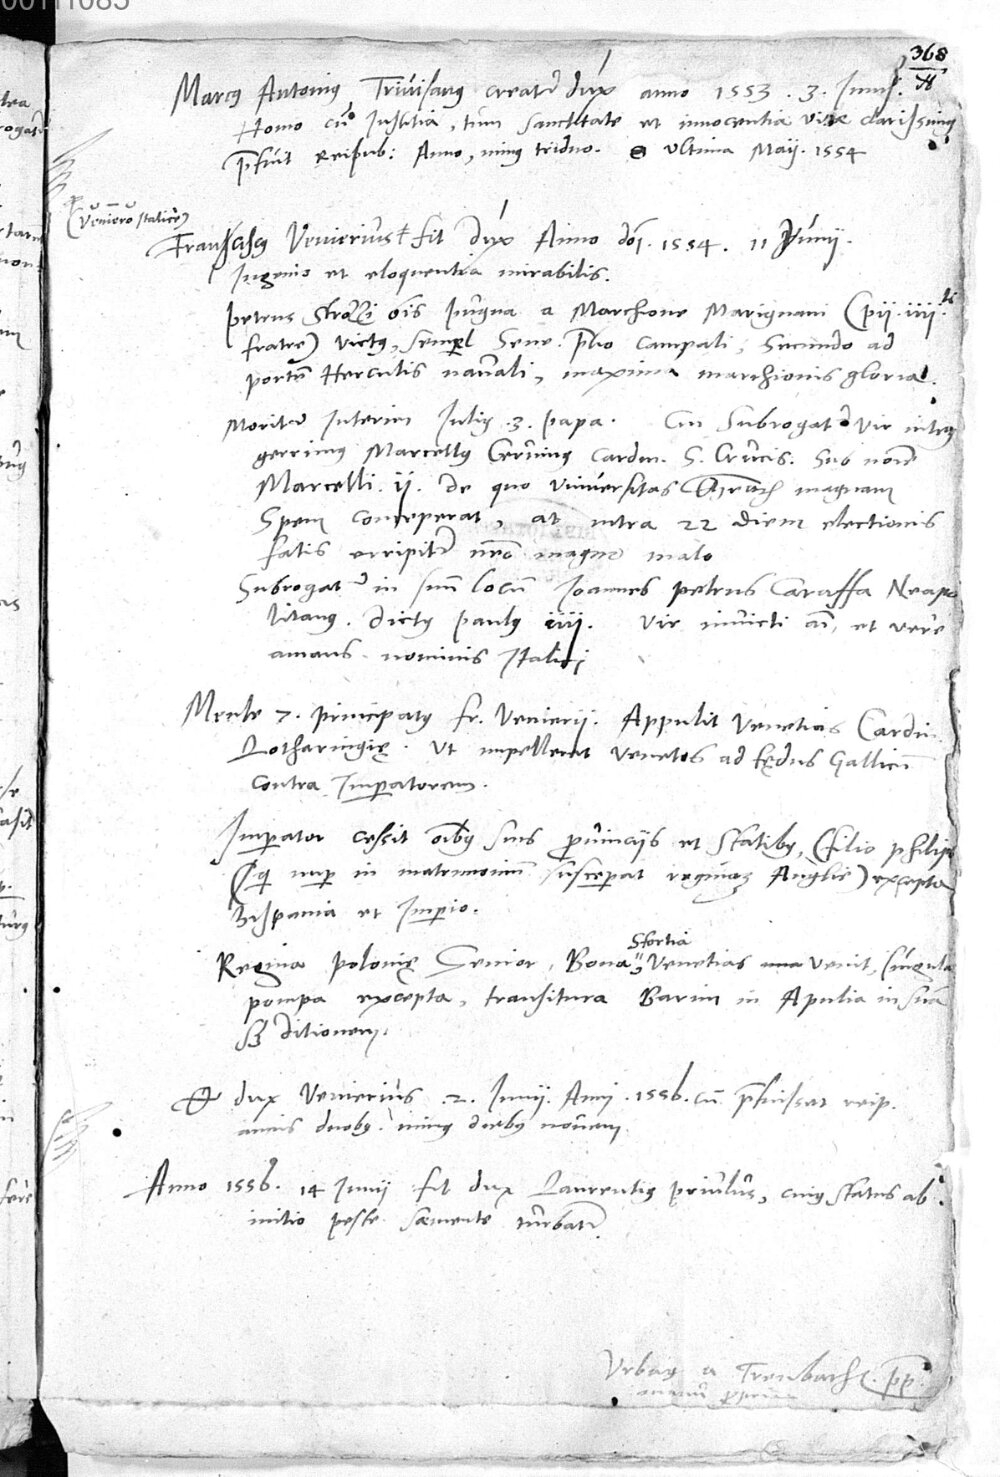 00111085
368
Marcus Antonius Trivisanus creatur dux anno 1553 . 3 . Junij.
Homo cum Justitia, tum sanctitate et innocentia vitae clarissimus
praefuit Reipub: Anno, minus triduo. ultima Maij. 1554
(Veniero Italice)
Franciscus Venerius fit dux Anno doi. 1554 . 11 Junij.
Ingenio et eloquentia mirabilis.
Petrus Strozzi ois pugna a Marchione Marignani (pii. iiii.ti
fratre) victus, semel Sene. proelio campali, Secundo ad
portum Herculis navali, maxima marchionis gloria.
Moritur Interim Julius .3. papa. Cui Subrogatur Vir integ
gerrimus Marcellus Cervinus Cardin. S. Crucis. Sub nomine
Marcelli . ii . de quo universitas magnam
Spem conceperat, at intra 22 diem electionis
fatis erripitur non magno malo
Subrogatur in suum locum Joannes petrus Caraffa Neapo
litanus . dictus paulus iiii . Vir invicti ai, et vere
amans nominis Italici
Mense 7. principatus fr. Venerii. Appulit Venetias Cardin.
Lotharingię . Ut impelleret Venetos ad fędus Gallicum
contra Imperatorem.
Imperator cessit oibus suis provinciis et statibus, (filio philip
(qui nuper in matrimonium susceperat reginam Anglie) excepta
Hispania et Imperio.
Sfortia
Regina polonię Senior, Bona Venetias venit, singula
pompa excepta, transitura Barim in Apulia in sua
ditionem.
dux Venerius .2. Junii. Anni . 1556. cum praefuisset reip.
annis duobus minus diebus novem
Anno 1556. 14 Junii fit dux Laurentius priulus, cuius status ab
initio peste saeviente turbatur.
Urbanus a Trenbach. pp.
manu propria